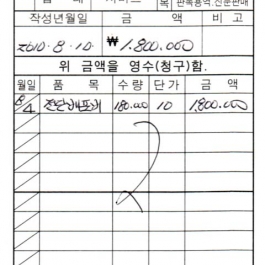 목 판촉용역.신문판매
작성년월일 금 액 비 고
2010.8.10. ₩1,800,000
위 금액을 영수(청구)함.
월일 품 목 수 량 단 가 금 액
8/4 전단배포비 180.000 10 1,800,000